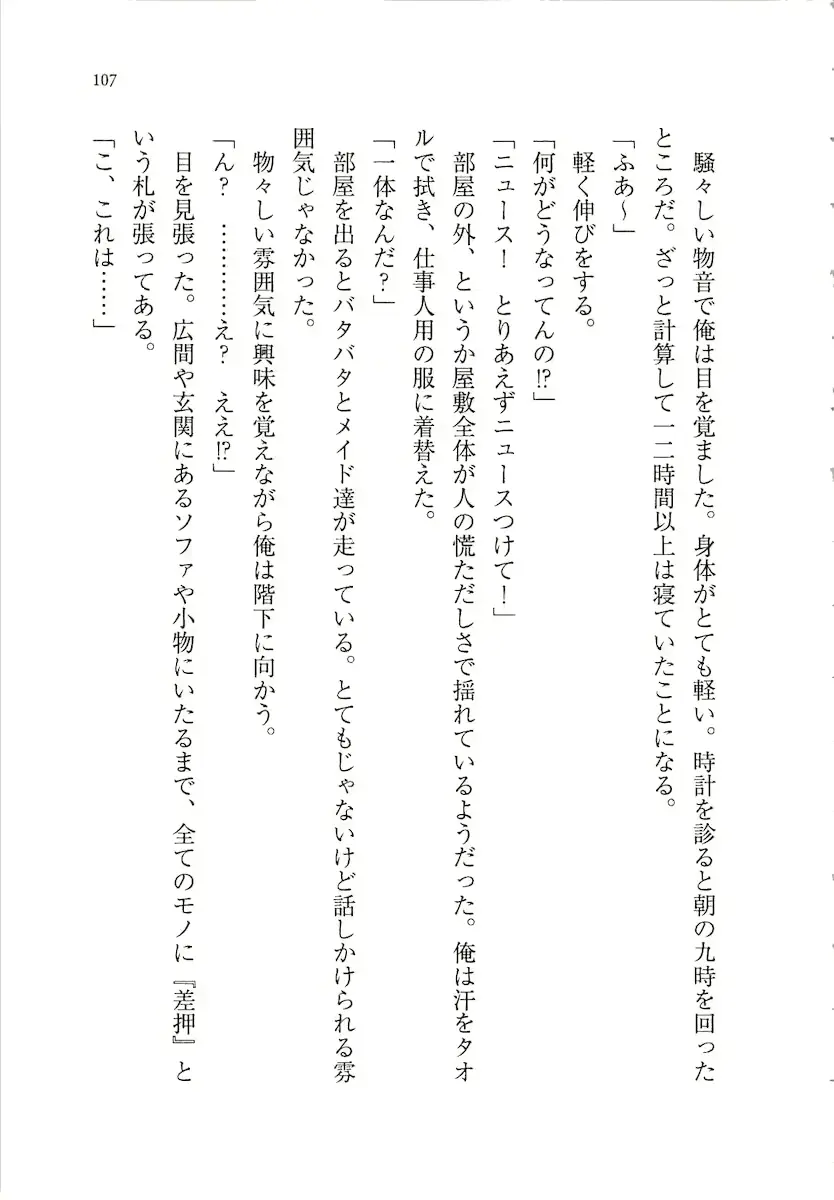 107
　騒々しい物音で俺は目を覚ました。身体がとても軽い。時計を診ると朝の九時を回った
ところだ。ざっと計算して一二時間以上は寝ていたことになる。
「ふあ〜」
　軽く伸びをする。
「何がどうなってんの!?」
「ニュース！　とりあえずニュースつけて！」
　部屋の外、というか屋敷全体が人の慌ただしさで揺れているようだった。俺は汗をタオ
ルで拭き、仕事人用の服に着替えた。
「一体なんだ？」
　部屋を出るとバタバタとメイド達が走っている。とてもじゃないけど話しかけられる雰
囲気じゃなかった。
　物々しい雰囲気に興味を覚えながら俺は階下に向かう。
「ん？　…………え？　ええ!?」
　目を見張った。広間や玄関にあるソファや小物にいたるまで、全てのモノに『差押』と
いう札が張ってある。
「こ、これは……」